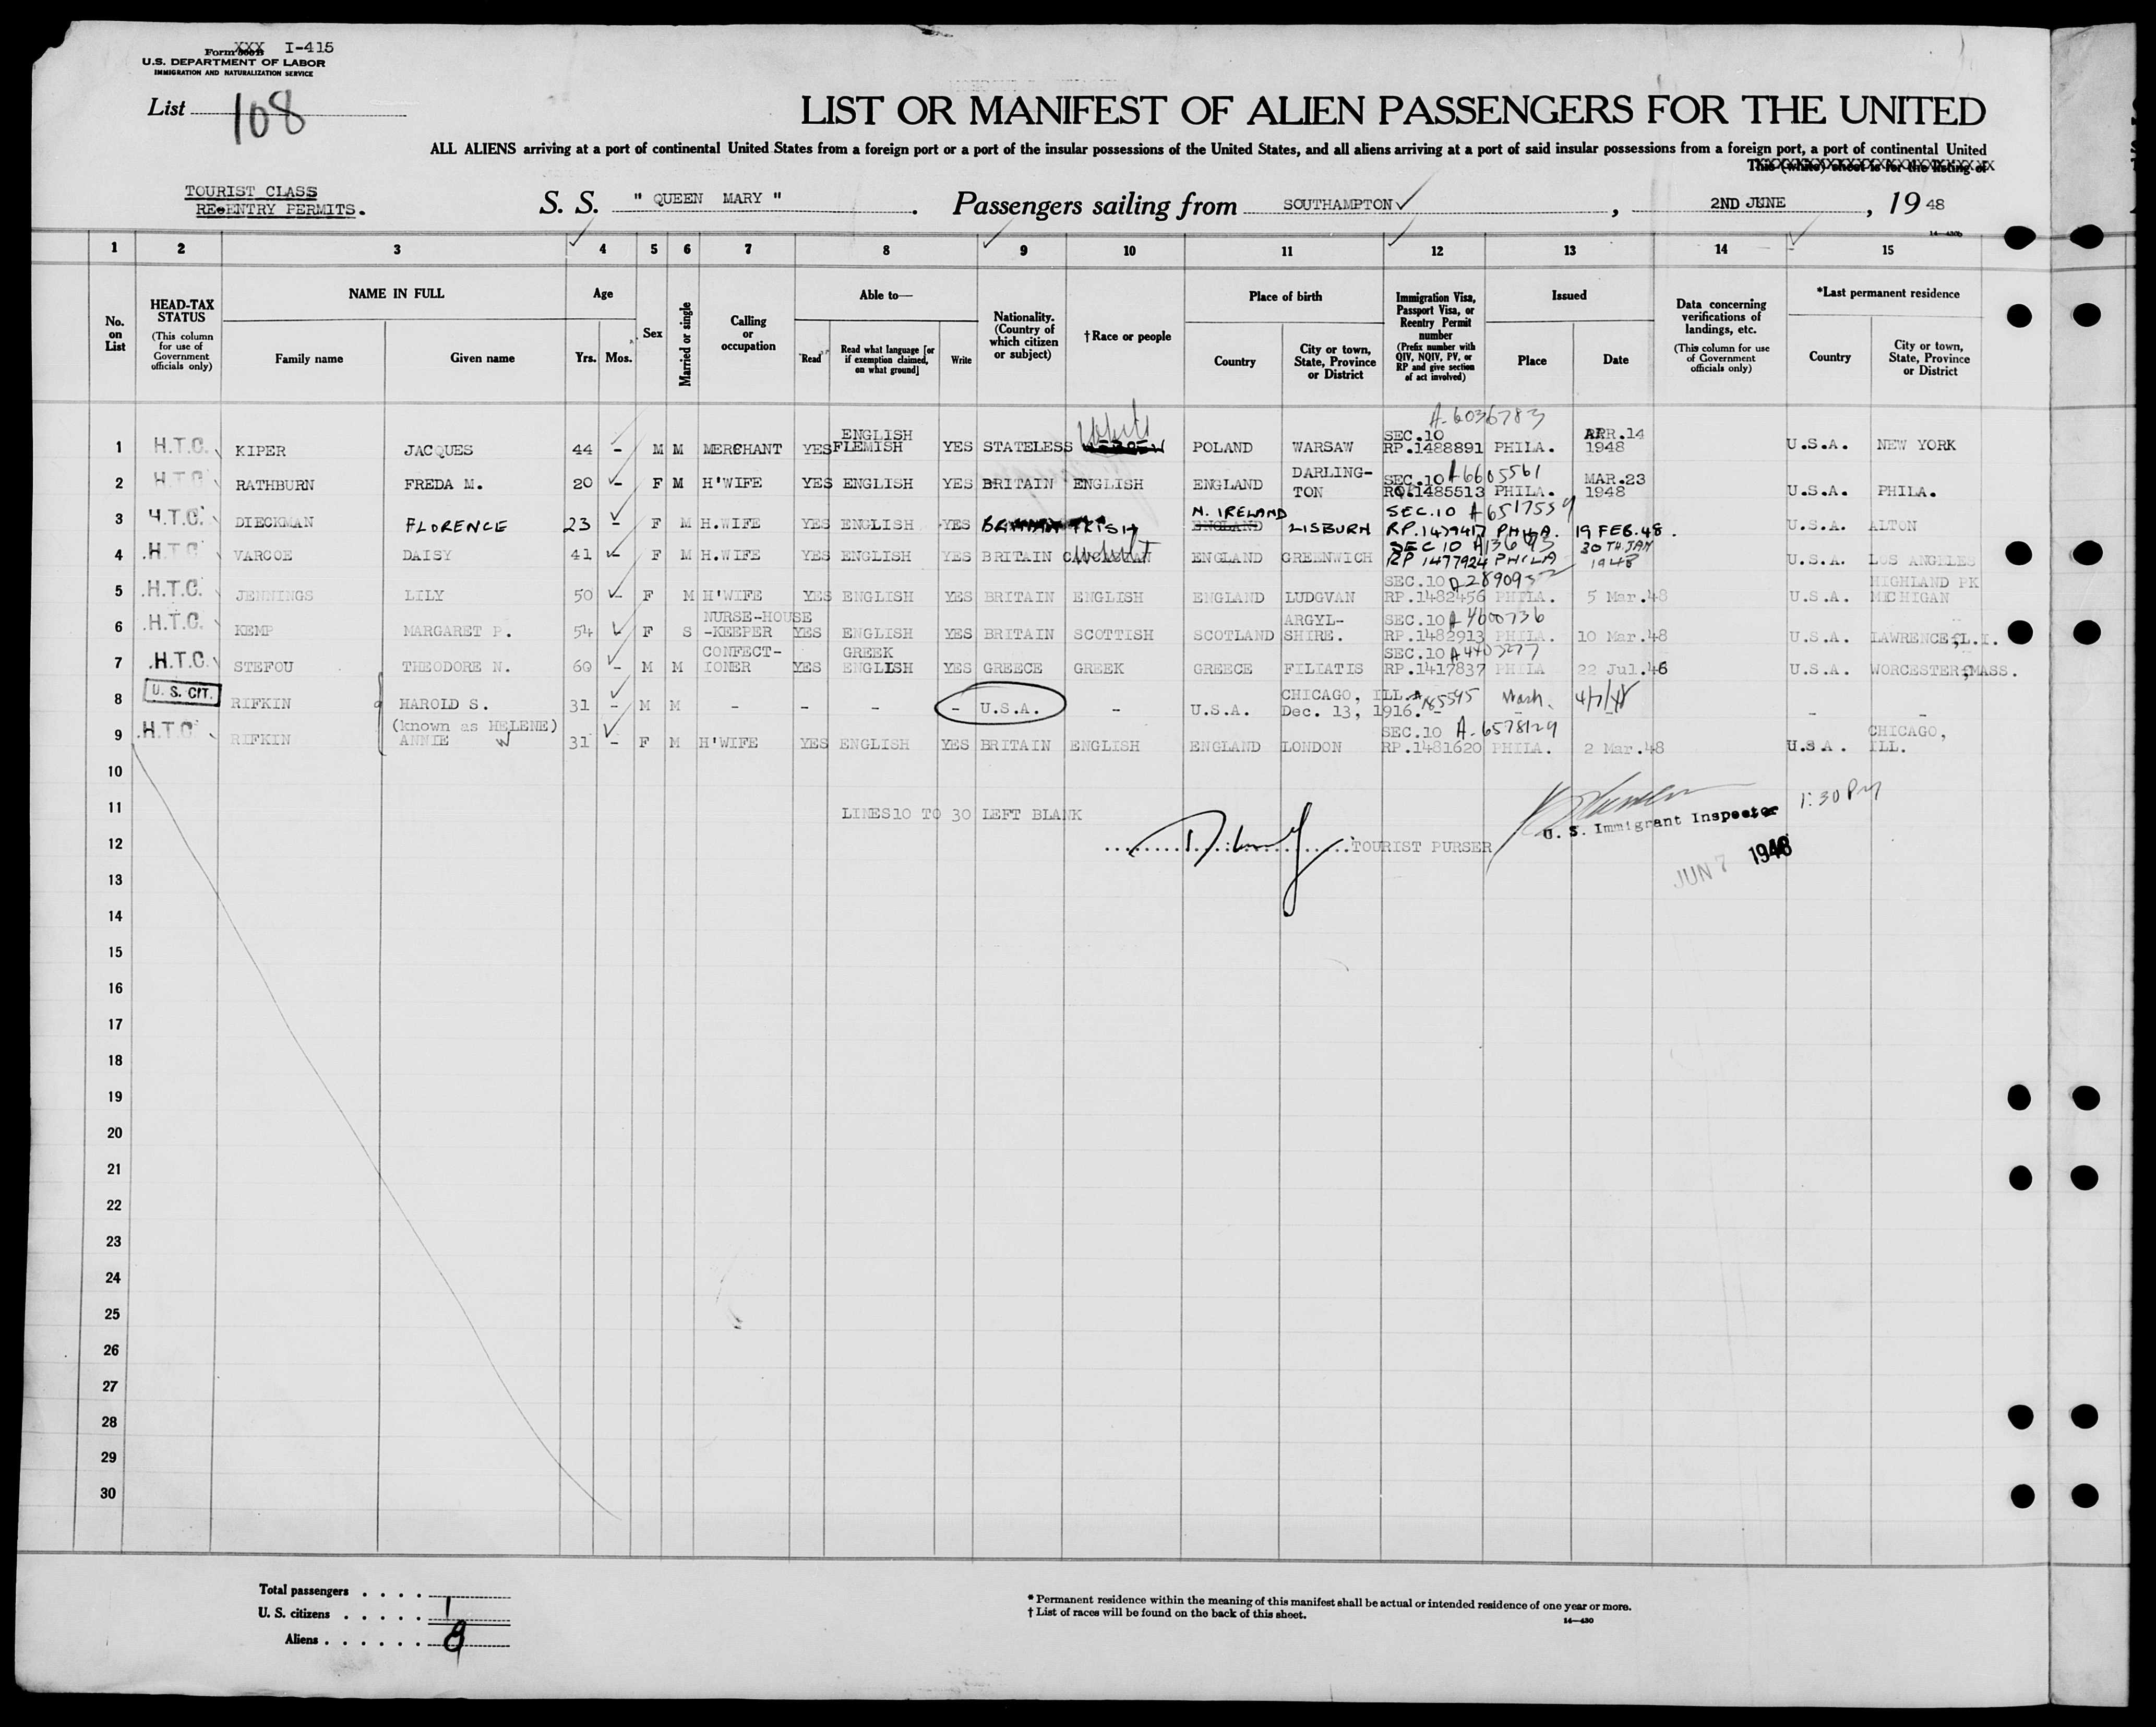 Form XXX I-415
U.S. DEPARTMENT OF LABOR
IMMIGRATION AND NATURALIZATION SERVICE
List 108
LIST OR MANIFEST OF ALIEN PASSENGERS FOR THE UNITED
ALL ALIENS arriving at a port of continental United States from a foreign port or a port of the insular possessions of the United States, and all aliens arriving at a port of said insular possessions from a foreign port, a port of continental United
This (white) sheet is for the listing of
TOURIST CLASS
RE-ENTRY PERMITS.
S. S. " QUEEN MARY ". Passengers sailing from SOUTHAMPTON, 2ND JUNE, 19 48
1 2 3 4 5 6 7 8 9 10 11 12 13 14 15
No. on List
HEAD-TAX STATUS
(This column for use of Government officials only)
NAME IN FULL
Family name
Given name
Age
Yrs. Mos.
Sex
Married or single
Calling or occupation
Able to—
Read
Read what language [or if exemption claimed, on what ground]
Write
Nationality. (Country of which citizen or subject)
†Race or people
Place of birth
Country
City or town, State, Province or District
Immigration Visa, Passport Visa, or Reentry Permit number
(Prefix number with QIV, NQIV, PV, or RP and give section of act involved)
Issued
Place
Date
Data concerning verifications of landings, etc.
(This column for use of Government officials only)
*Last permanent residence
Country
City or town, State, Province or District
1 H.T.C. KIPER JACQUES 44 - M M MERCHANT YES ENGLISH FLEMISH YES STATELESS White HEBREW POLAND WARSAW SEC.10 A-6036783 RP.1488891 PHILA. APR.14 1948 U.S.A. NEW YORK
2 H.T.C RATHBURN FREDA M. 20 - F M H'WIFE YES ENGLISH YES BRITAIN ENGLISH ENGLAND DARLING-TON SEC.10 A6605561 RP.1485513 PHILA. MAR.23 1948 U.S.A. PHILA.
3 H.T.C. DIECKMAN FLORENCE 23 - F M H.WIFE YES ENGLISH YES BRITAIN IRISH N. IRELAND ENGLAND LISBURN SEC.10 A6517539 RP.1479417 PHILA. 19 FEB.48. U.S.A. ALTON
4 .H.T.C VARCOE DAISY 41 - F M H.WIFE YES ENGLISH YES BRITAIN ENGLAND GREENWICH SEC 10 RP 1477924 PHILA 30TH.JAN 1948 U.S.A. LOS ANGELES
5 .H.T.C. JENNINGS LILY 50 - F M H'WIFE YES ENGLISH YES BRITAIN ENGLISH ENGLAND LUDGVAN SEC.10 RP.1482456 PHILA. 5 Mar.48 U.S.A. HIGHLAND PK MICHIGAN
6 .H.T.C. KEMP MARGARET P. 54 - F S NURSE-HOUSE-KEEPER YES ENGLISH YES BRITAIN SCOTTISH SCOTLAND ARGYL-SHIRE. SEC.10 A 4600736 RP.1482913 PHILA. 10 Mar.48 U.S.A. LAWRENCE, L.I.
7 .H.T.C. STEFOU THEODORE N. 60 - M M CONFECT-IONER YES GREEK ENGLISH YES GREECE GREEK GREECE FILIATIS SEC.10 A4403277 RP.1417837 PHILA 22 Jul.46 U.S.A. WORCESTER, MASS.
8 U. S. CIT. RIFKIN HAROLD S. 31 - M M - - - - U.S.A. - U.S.A. CHICAGO, ILL. Dec. 13, 1916. 185595 Wash. 4/7/48 - -
9 .H.T.C RIFKIN (known as HELENE) ANNIE W 31 - F M H'WIFE YES ENGLISH YES BRITAIN ENGLISH ENGLAND LONDON SEC.10 A-6578129 RP.1481620 PHILA. 2 Mar.48 U.S.A. CHICAGO, ILL.
10
11 LINES 10 TO 30 LEFT BLANK
U. S. Immigrant Inspector 1:30 PM
12 TOURIST PURSER
JUN 7 1948
13
14
15
16
17
18
19
20
21
22
23
24
25
26
27
28
29
30
Total passengers . . . .
U. S. citizens . . . . . 1
Aliens . . . . . . 8
* Permanent residence within the meaning of this manifest shall be actual or intended residence of one year or more.
† List of races will be found on the back of this sheet.
14—430